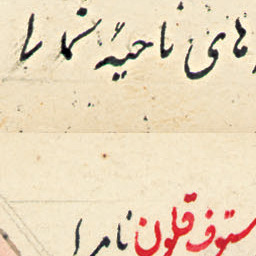 های ناحیهٔ شما را
ستوف قلون نامرا